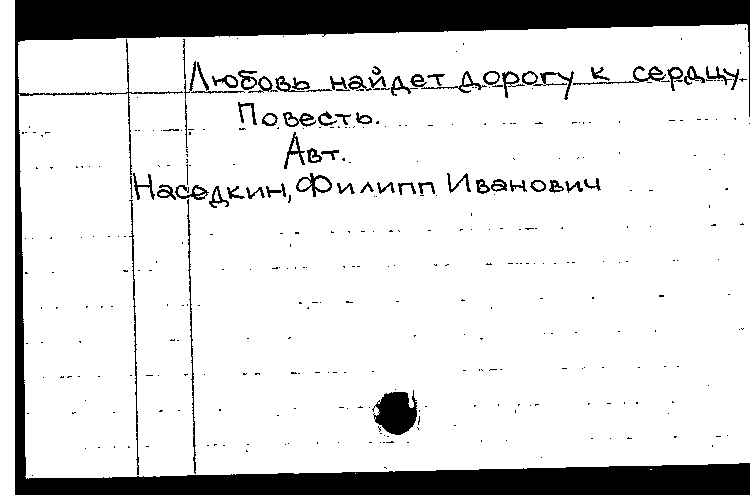 Любовь найдет дорогу к сердцу.
Повесть.
Авт.
Наседкин, Филипп Иванович